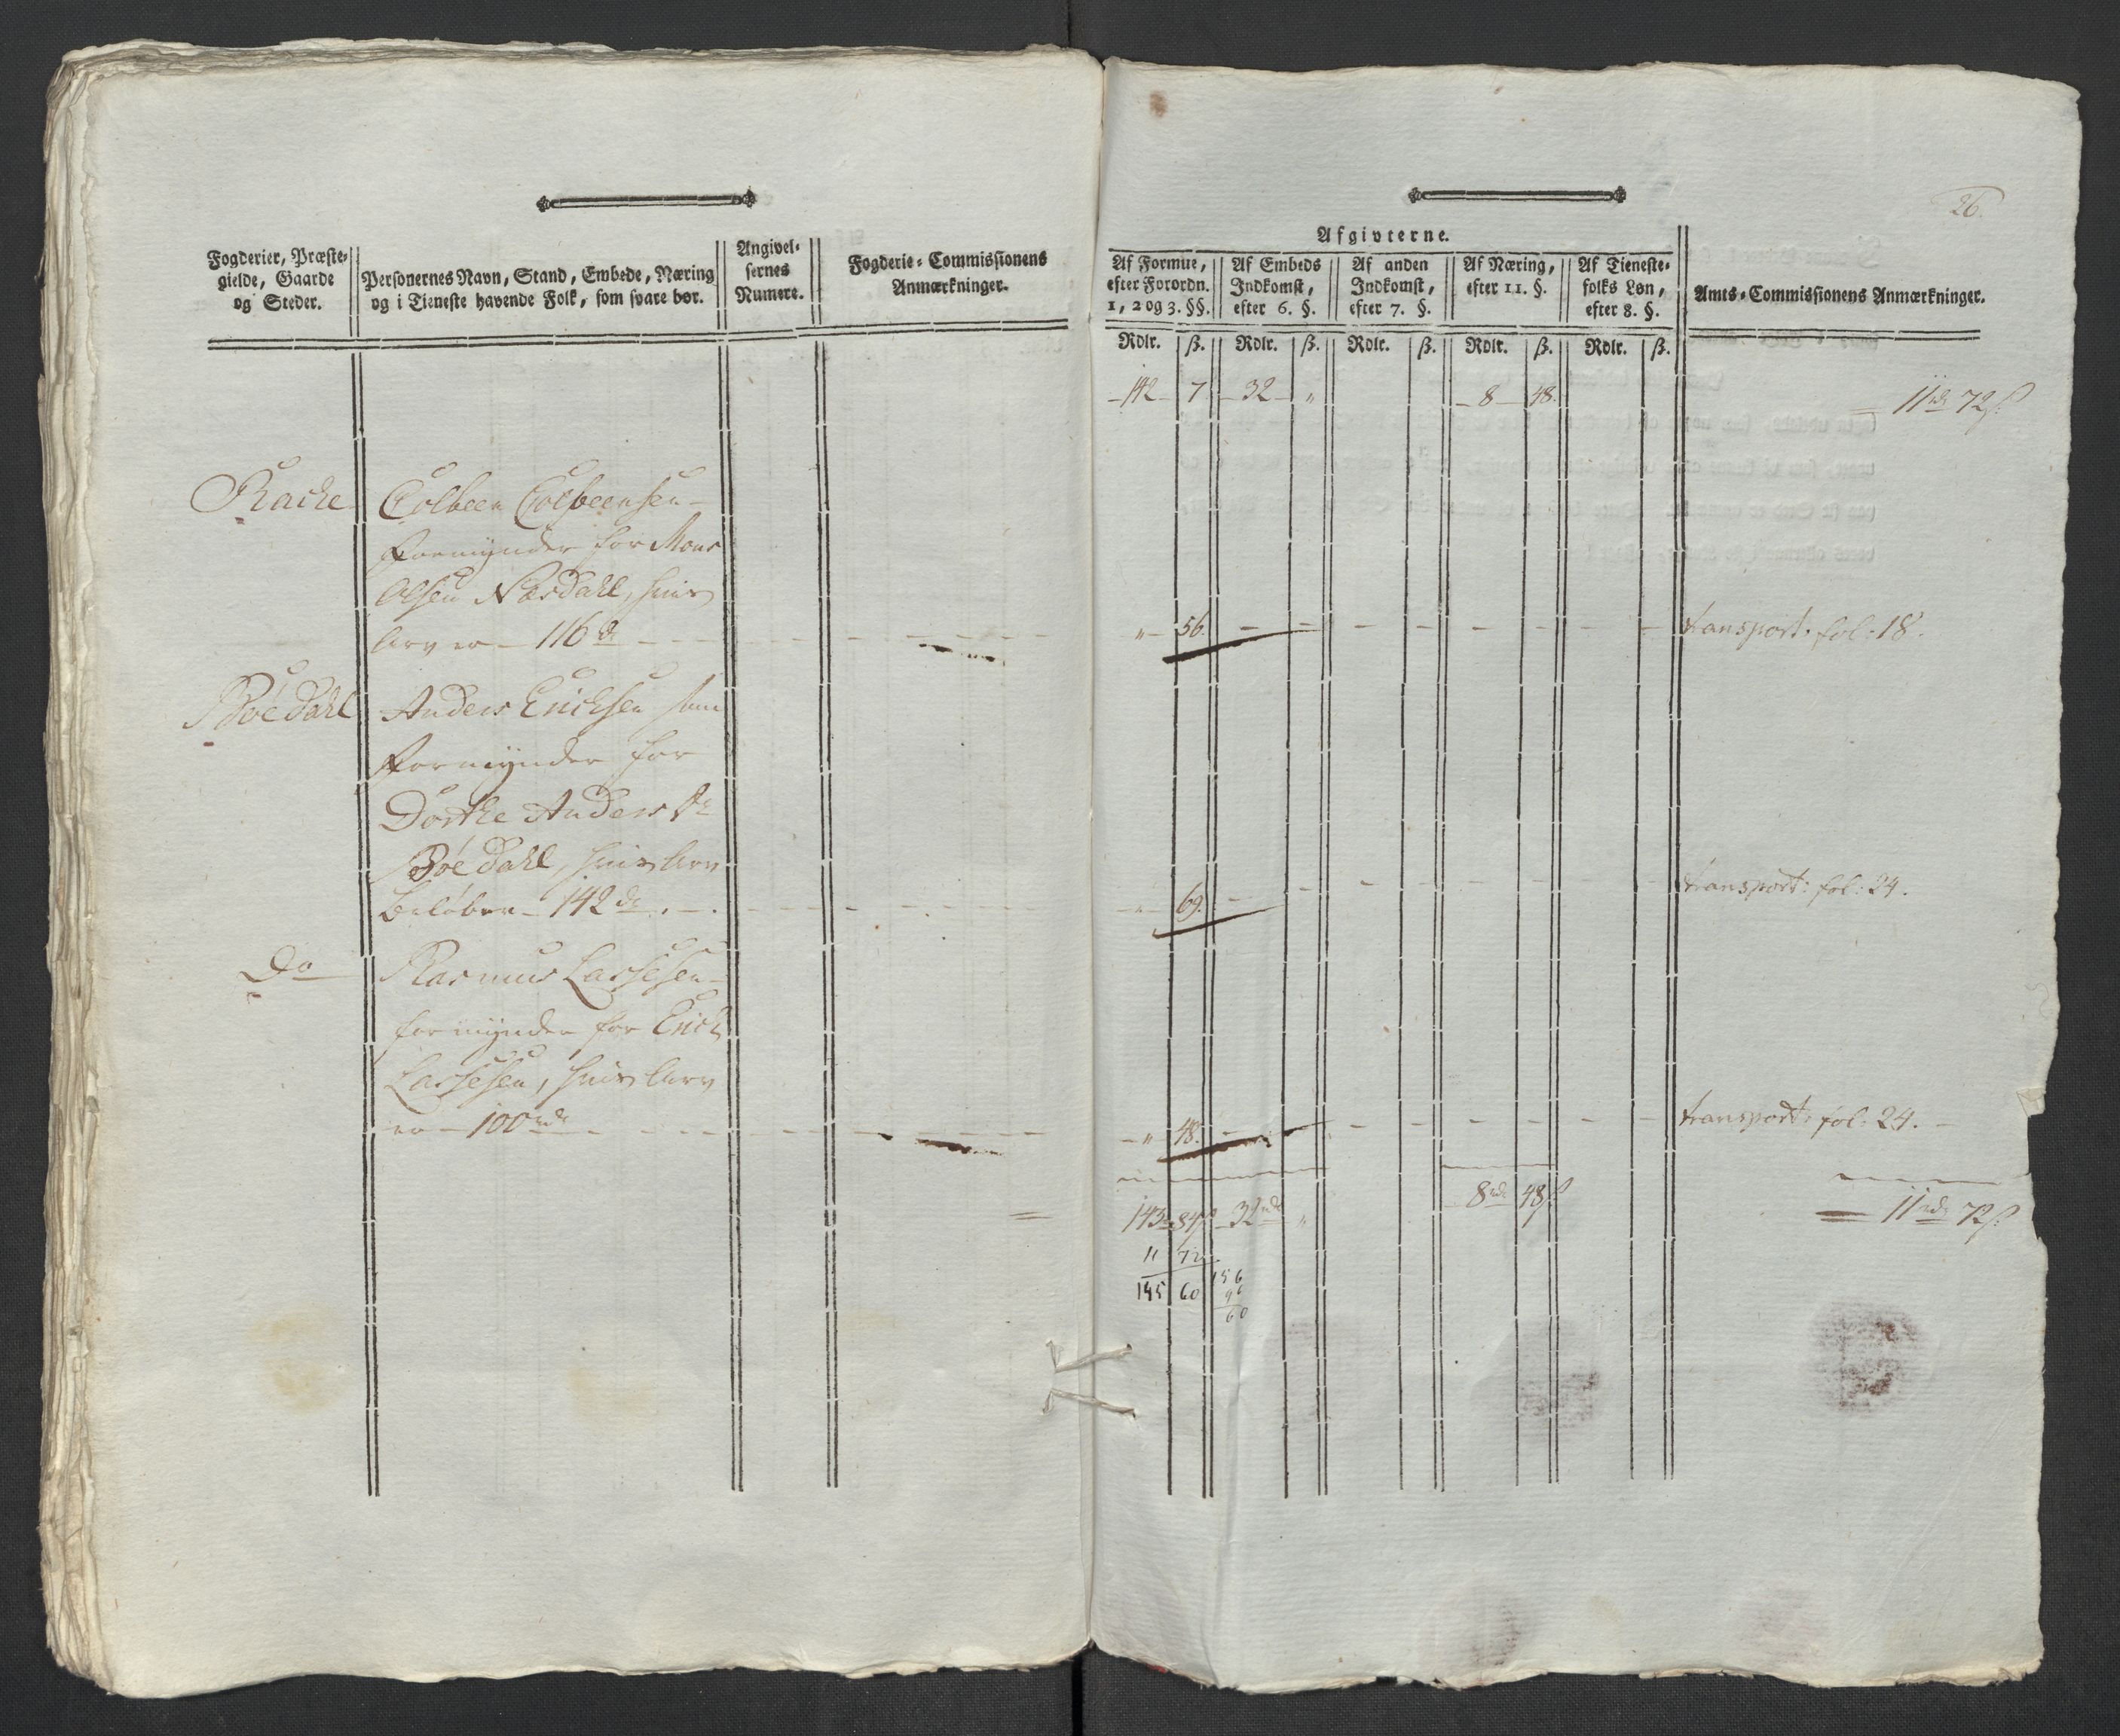 Fogderier, Præste-
gielde, Gaarde
og Steder.
Personernes Navn, Stand, Embede, Næring
og i Tieneste havende Folk, som svare bør.
Angivel-
sernes
Numere.
Fogderie-Commissionens
Anmærkninger.
26.
Afgivterne.
Af Formue,
efter Forordn.
1, 2 og 3. §§.
Af Embeds
Indkomst,
efter 6. §.
Af anden
Indkomst,
efter 7. §.
Af Næring,
efter 11. §.
Af Tieneste-
folks Løn,
efter 8. §.
Amts-Commissionens Anmærkninger.
Rdlr. ß. Rdlr. ß. Rdlr. ß. Rdlr. ß. Rdlr. ß.
142 7. 32 " 8 48. 11 rd 72 ß.
Racke Colbeen Colbeensen
Formynder for Mons
Olsen Næsdahl, hvis
Arv er 116 d " 56. transport. fol: 18.
Böedahl Anders Ericksen som
Formynder for
Dorthe Anders Dr
Böedahl, hvis Arv
beløber 142 d " 69. transport: fol: 24.
Do Rasmus Lassesen
formynder for Erick
Lassesen, hvis Arv
er 100 rd " 48. transport: fol: 24.
143 84 ß 32 rd " 8 rd 48 ß 11 rd 72 ß.
11 72
155 60
156
96
60